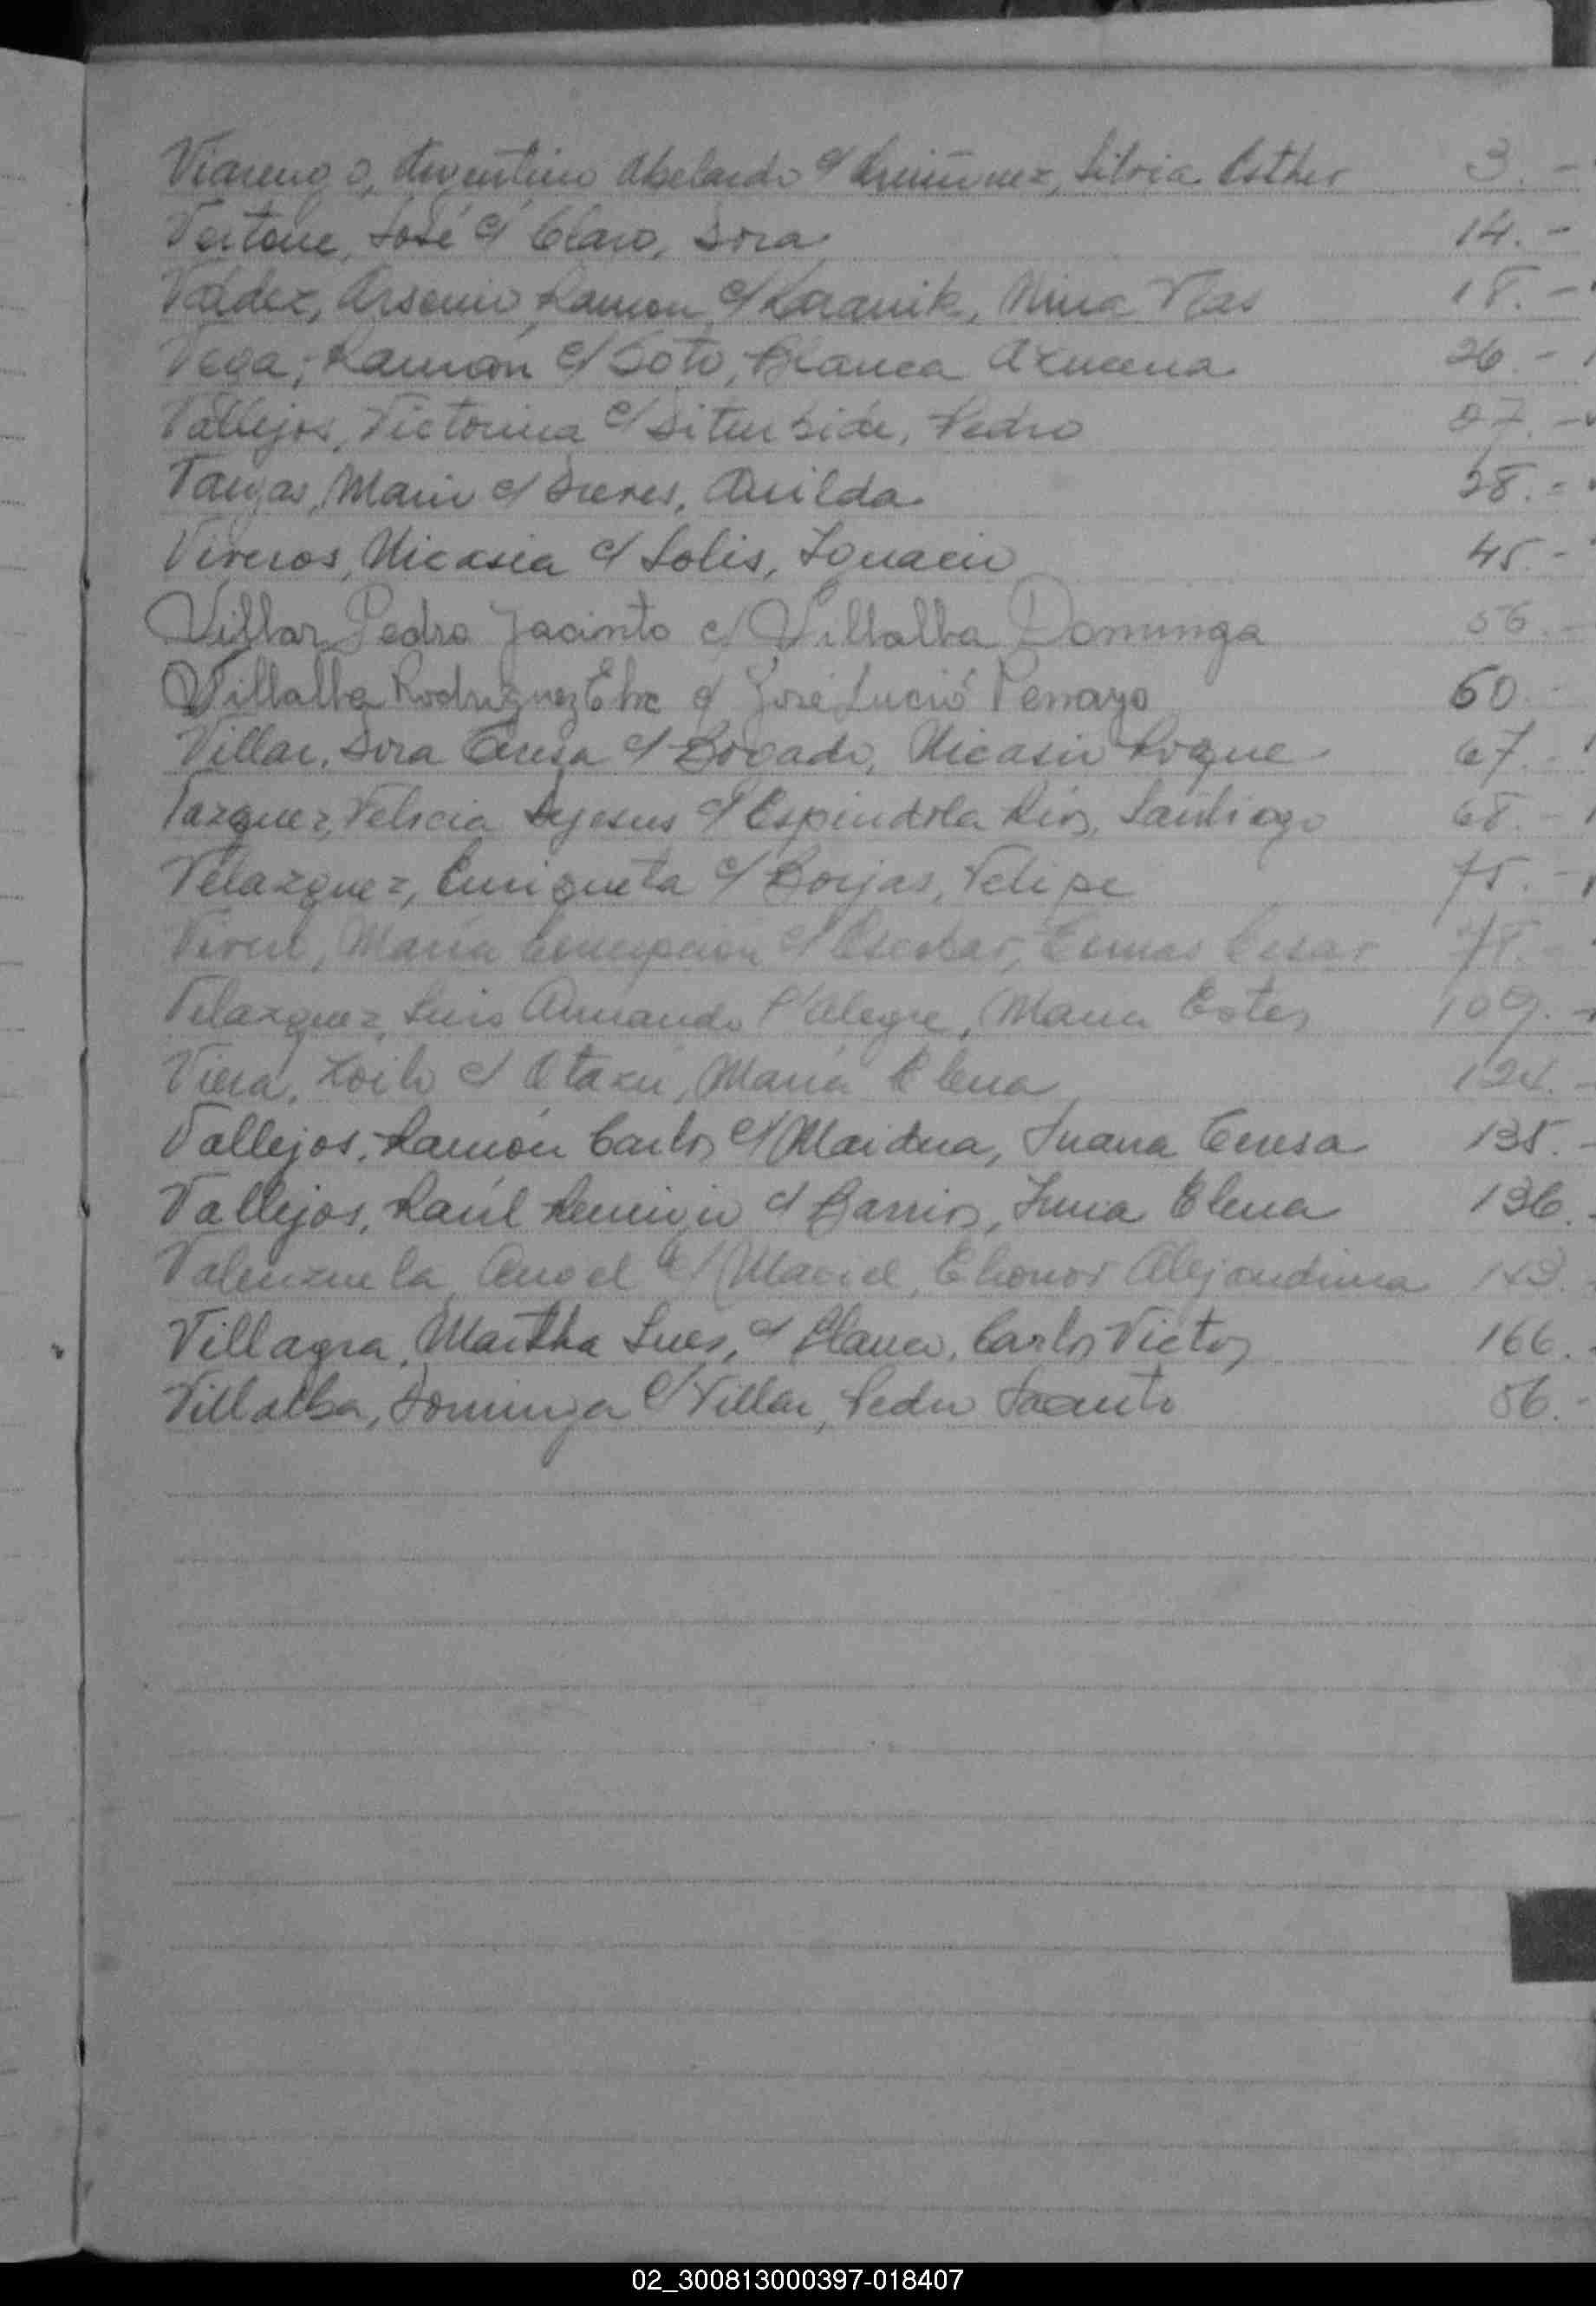 Viarengo, Argentino Abelardo c/ Silvia Esther 3.-
Vertone, José c/ Claro, Dora 14.-
Valdez, Arsenio Ramon c/ Nina Vlas 18.-
Vega, Ramón c/ Soto, Blanca Azucena 26.-
Vallejos, Victorina c/ Pedro 27.-
Vargas, Mario c/ 38.-
Viveros, Nicasia c/ Solis, Ignacio 45.-
Villar Pedro Jacinto c/ Villalba Dominga 56.-
Villalba Rodriguez c/ José Lucio 60.-
Villar, Dora Teresa c/ Bovado, Nicasio Roque 67.-
Vazquez, Felicia Dejesus c/ Espindola Rios, Santiago 68.-
Velazquez, Enriqueta c/ Borjas, Felipe 75.-
María Concepción c/ Escobar, Tomas Cesar 78.-
Velazquez, Luis Armando c/ Alegre, María Ester 109.-
Viera, Zoilo c/ Otazu, María Elena 124.-
Vallejos, Ramón Carlos c/ Maidana, Juana Teresa 135.-
Vallejos, Raúl Remigio c/ Barrios, Elena 136.-
Valenzuela, Angel c/ Maciel, Elionor Alejandrina 143.
Villagra, Martha Ines, c/ Blanco, Carlos Victor 166.-
Villalba, Dominga c/ Villar, Pedro Jacinto 56.-
02_300813000397-018407